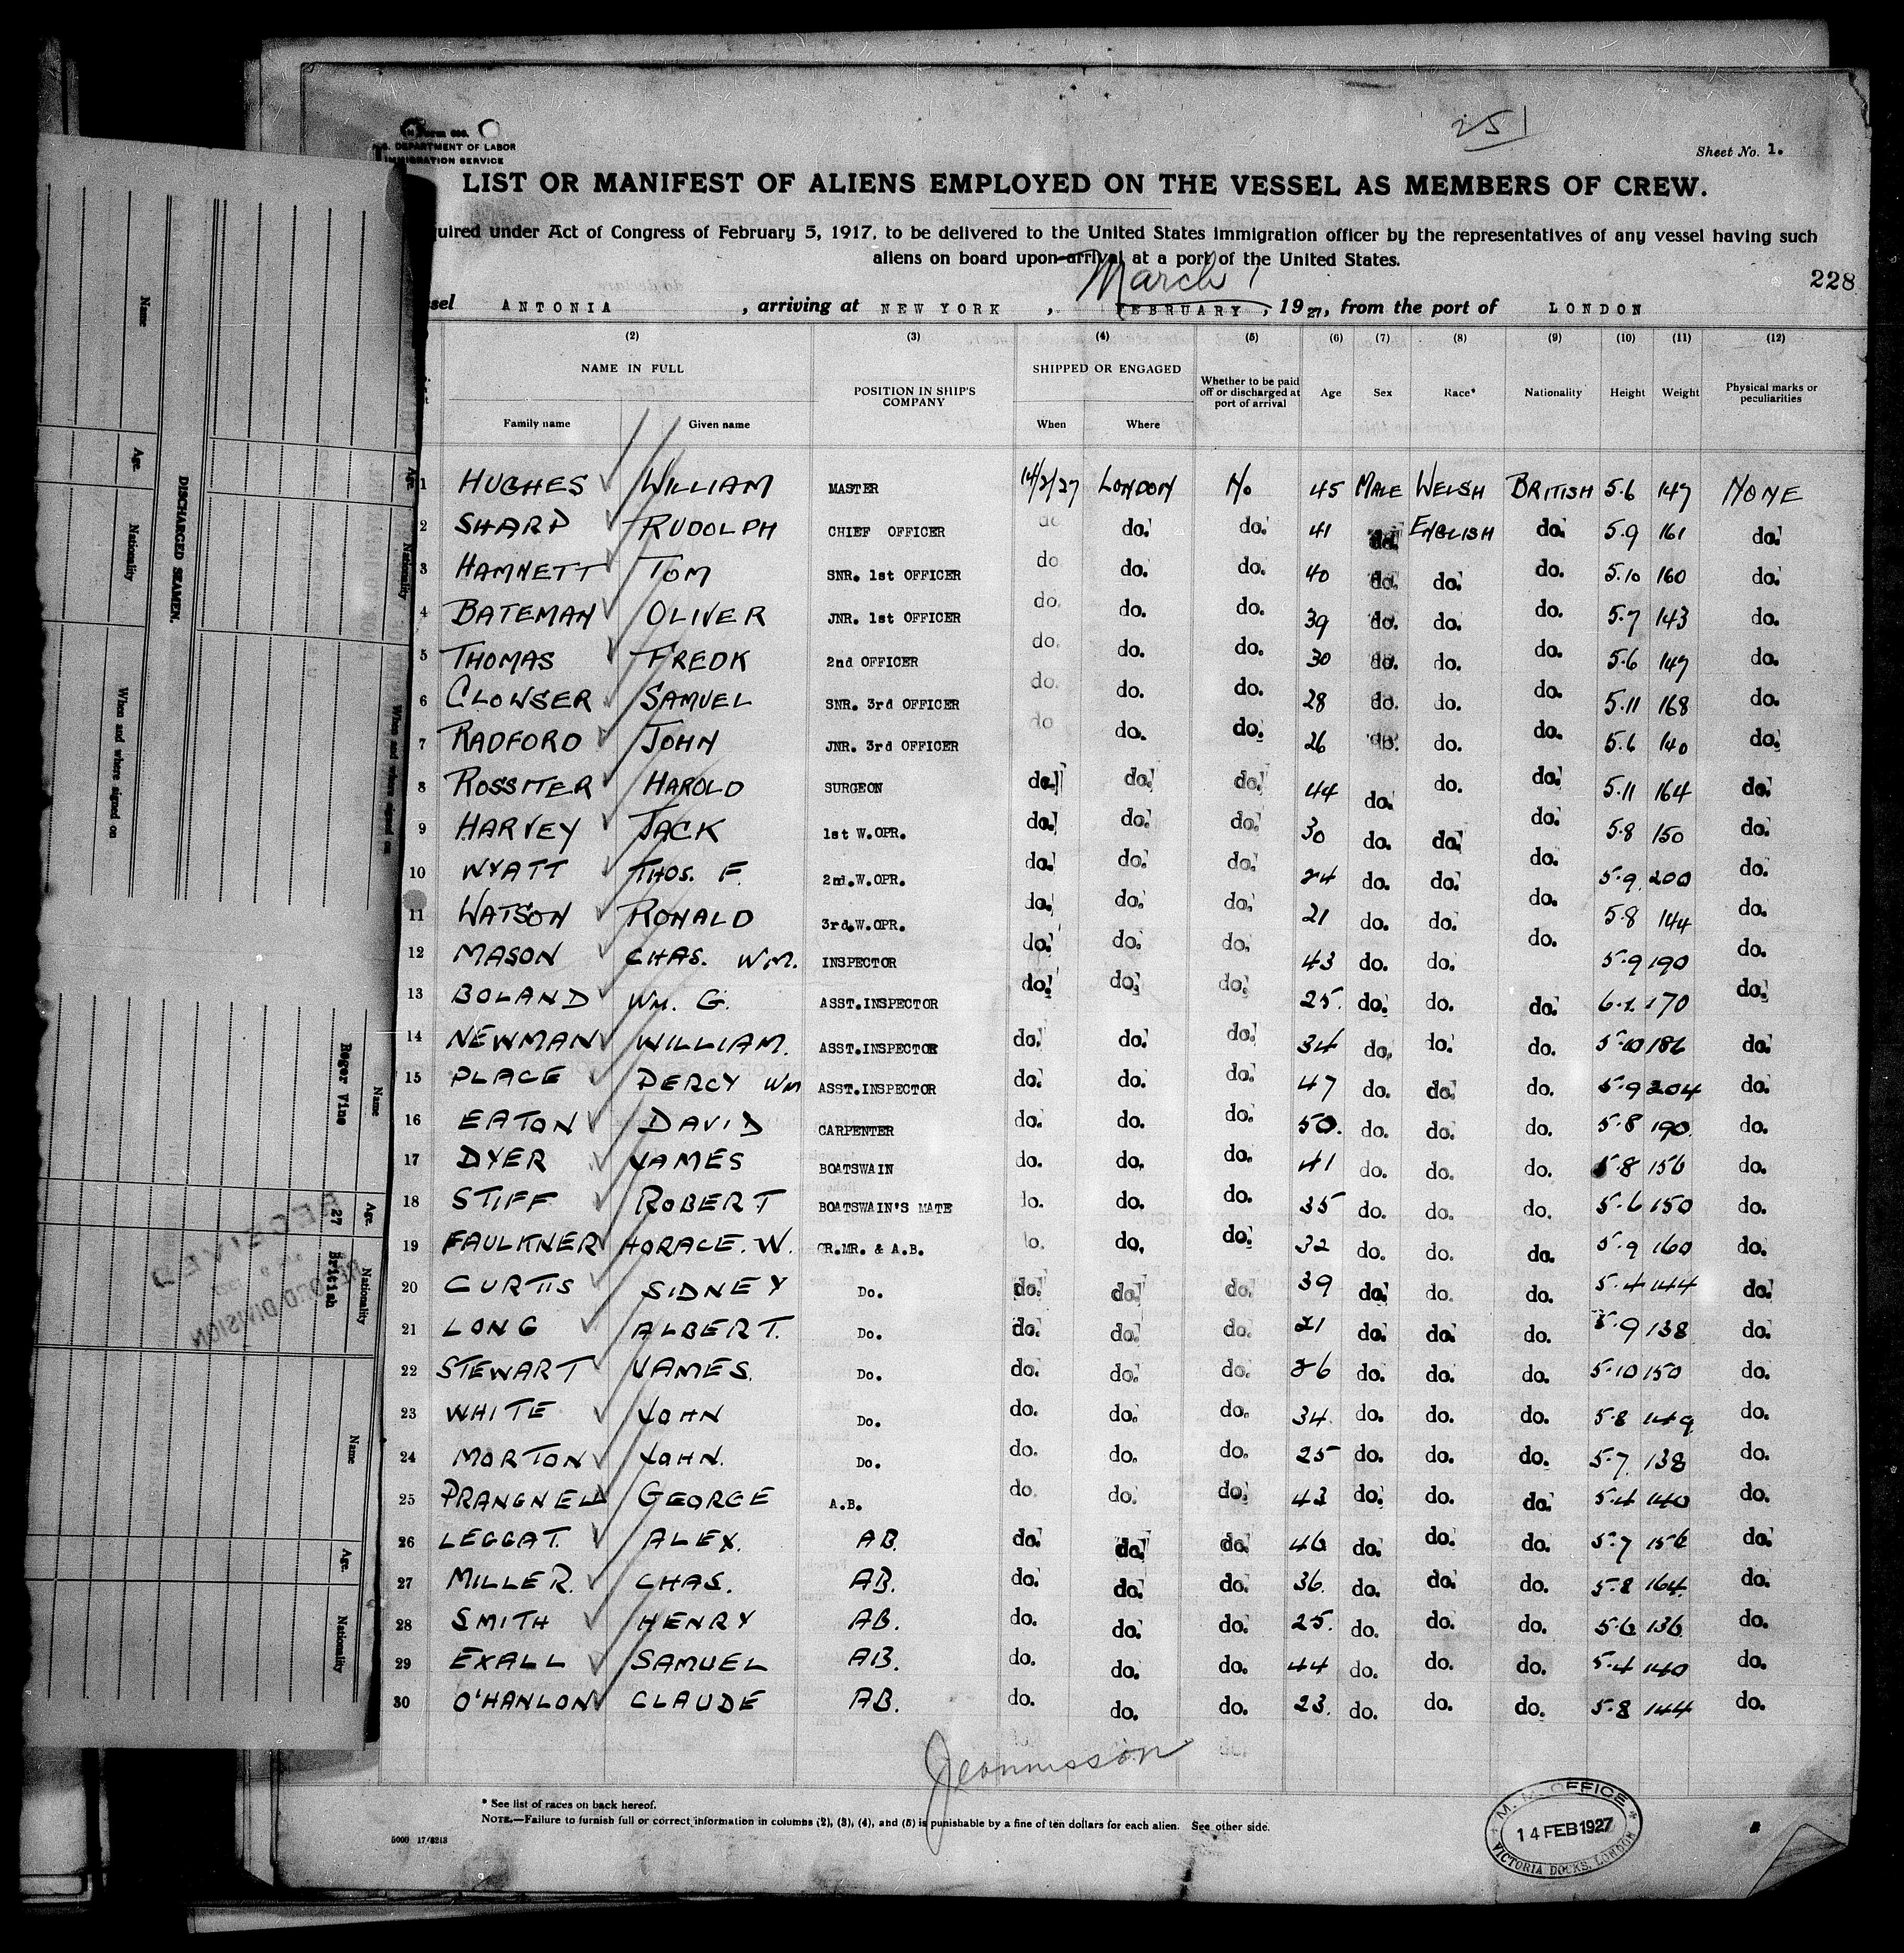 251
Sheet No. 1.
DEPARTMENT OF LABOR
IMMIGRATION SERVICE
LIST OR MANIFEST OF ALIENS EMPLOYED ON THE VESSEL AS MEMBERS OF CREW.
under Act of Congress of February 5, 1917, to be delivered to the United States immigration officer by the representatives of any vessel having such
aliens on board upon arrival at a port of the United States.
228
March 1
ANTONIA, arriving at NEW YORK, FEBRUARY, 1927, from the port of LONDON
(2) (3) (4) (5) (6) (7) (8) (9) (10) (11) (12)
NAME IN FULL POSITION IN SHIP'S COMPANY SHIPPED OR ENGAGED Whether to be paid off or discharged at port of arrival Age Sex Race* Nationality Height Weight Physical marks or peculiarities
Family name Given name When Where
1 HUGHES WILLIAM MASTER 14/2/27 LONDON No 45 MALE WELSH BRITISH 5.6 147 NONE
2 SHARP RUDOLPH CHIEF OFFICER do do. do. 41 do. ENGLISH do. 5.9 161 do.
3 HAMNETT TOM SNR. 1st OFFICER do do. do. 40 do. do. do. 5.10 160 do.
4 BATEMAN OLIVER JNR. 1st OFFICER do. do. do. 39 do. do. do. 5.7 143 do.
5 THOMAS FREDK 2nd OFFICER do. do. do. 30 do. do. do. 5.6 147 do.
6 CLOWSER SAMUEL SNR. 3rd OFFICER do. do. do. 28 do. do. do. 5.11 168 do.
7 RADFORD JOHN JNR. 3rd OFFICER do do. do. 26 do. do. do. 5.6 140 do.
8 ROSSITER HAROLD SURGEON do. do. do. 44 do. do. do. 5.11 164 do.
9 HARVEY JACK 1st W.OPR. do. do. do. 30 do. do. do. 5.8 150 do.
10 WYATT THOS. F. 2nd.W.OPR. do. do. do. 24 do. do. do. 5.9 200 do.
11 WATSON RONALD 3rd.W.OPR. do. do. do. 21 do. do. do. 5.8 144 do.
12 MASON CHAS. WM. INSPECTOR do. do. do. 43 do. do. do. 5.9 190 do.
13 BOLAND WM. G. ASST.INSPECTOR do. do. do. 25. do. do. do. 6.1 170 do.
14 NEWMAN WILLIAM. ASST.INSPECTOR do. do. do. 34 do. do. do. 5.10 186 do.
15 PLACE PERCY WM ASST.INSPECTOR do. do. do. 47 do. do. do. 5.9 204 do.
16 EATON DAVID CARPENTER do. do. do. 50. do. do. do. 5.8 190. do.
17 DYER JAMES BOATSWAIN do. do. do. 41 do. do. do. 5.8 156 do.
18 STIFF ROBERT BOATSWAIN'S MATE do. do. do. 35 do. do. do. 5.6 150 do.
19 FAULKNER HORACE. W. QR.MR. & A.B. do. do. do. 32 do. do. do. 5.9 160 do.
20 CURTIS SIDNEY Do. do. do. do. 39 do. do. do. 5.4 144 do.
21 LONG ALBERT. Do. do. do. do. 21 do. do. do. 5.9 138 do.
22 STEWART JAMES. Do. do. do. do. 26 do. do. do. 5.10 150 do.
23 WHITE JOHN Do. do. do. do. 34. do. do. do. 5.8 149 do.
24 MORTON JOHN. Do. do. do. do. 25 do. do. do. 5.7. 138 do.
25 PRANGNELL GEORGE A.B. do. do. do. 43 do. do. do. 5.4 140 do.
26 LEGGAT. ALEX. AB. do. do. do. 46 do. do. do. 5.7 156 do.
27 MILLER. CHAS. AB. do. do. do. 36. do. do. do. 5.8 164. do.
28 SMITH HENRY AB. do. do. do. 25. do. do. do. 5.6 136. do.
29 EXALL SAMUEL AB. do. do. do. 44 do. do. do. 5.4 140 do.
30 O'HANLON CLAUDE AB. do. do. do. 23. do. do. do. 5.8 144 do.
* See list of races on back hereof.
NOTE.—Failure to furnish full or correct information in columns (2), (3), (4), and (5) is punishable by a fine of ten dollars for each alien. See other side.
M. M. OFFICE
14 FEB 1927
VICTORIA DOCKS, LONDON
DISCHARGED SEAMEN.
Name Age. Nationality When and where signed on
Name Age. Nationality
Roger Vine 27 British
Name Age. Nationality
RECEIVED
RECORD DIVISION